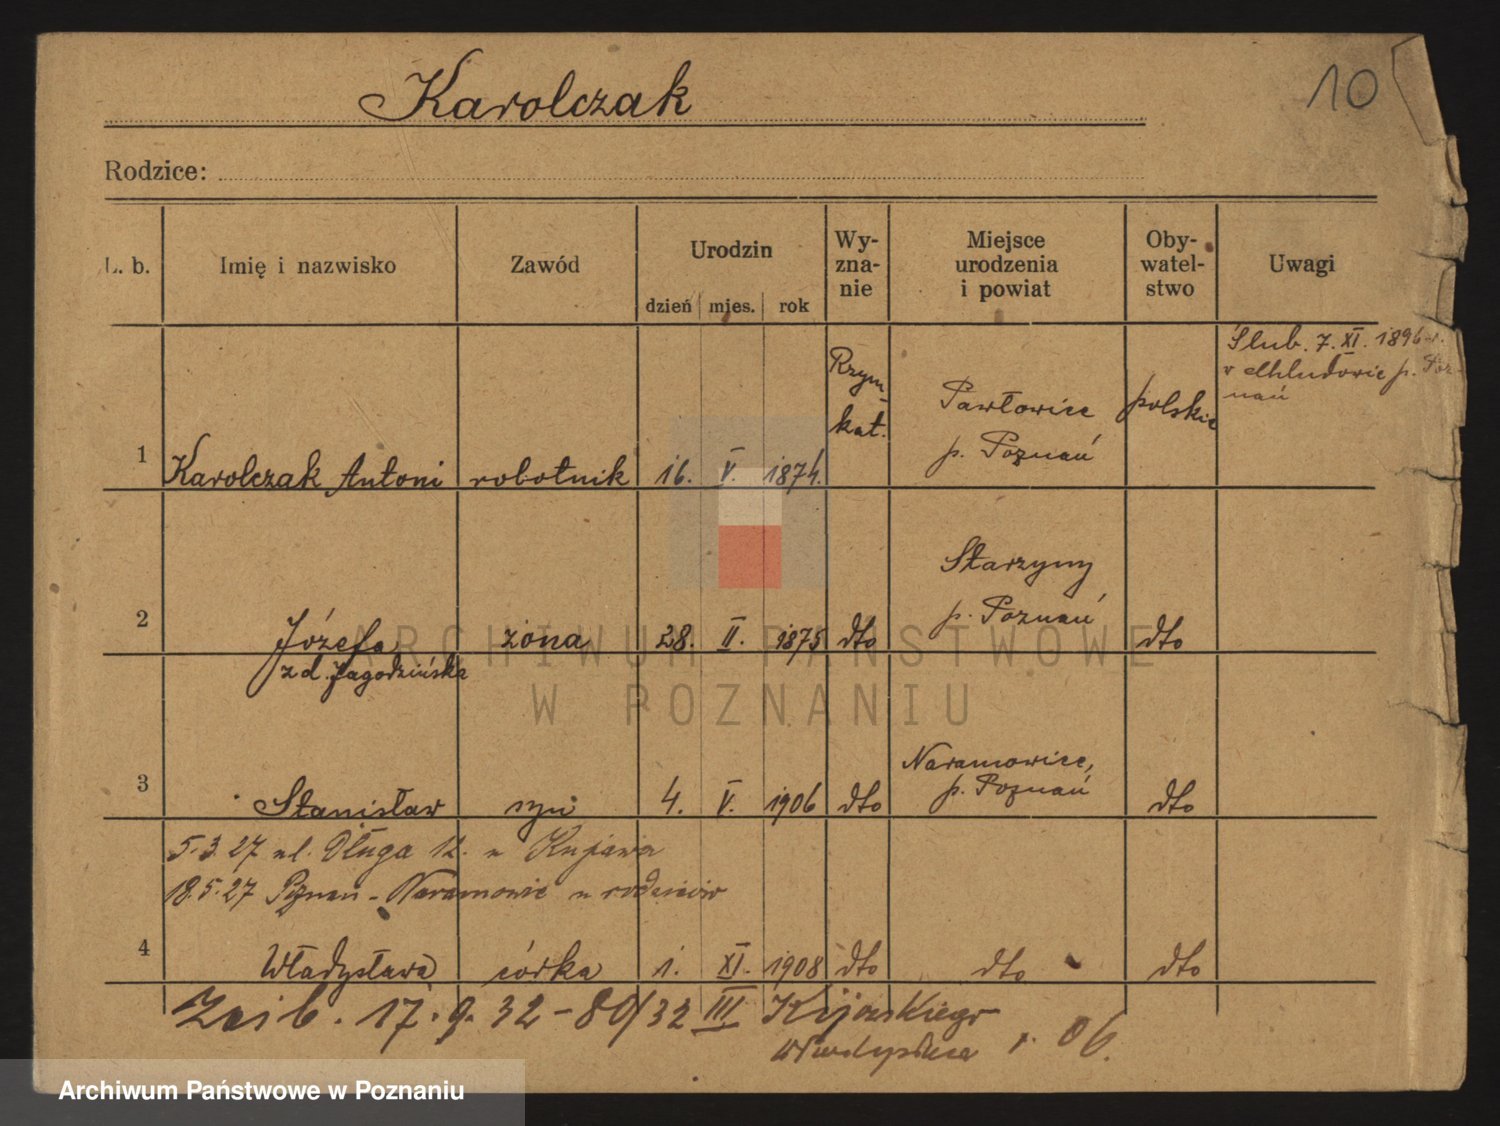 Karolczak
10
Rodzice:
L. b.
Imię i nazwisko
Zawód
Urodzin
dzień mies. rok
Wy-
zna-
nie
Miejsce
urodzenia
i powiat
Oby-
watel-
stwo
Uwagi
1
Karolczak Antoni
robotnik
16. V. 1874.
Rzym-
kat.
Pawłowice
p. Poznań
polskie
Ślub. 7. XI. 1896 r.
w Chludowie p. Poz-
nań
2
Józefa
z d. Jagodzińska
żona
28. II. 1875
dto
Starzyny
p. Poznań
dto
3
Stanisław
syn
4. V. 1906
dto
Naramowice,
p. Poznań
dto
5.3.27 ul. Długa 12. u Kujawa
18.5.27 Poznań - Naramowice u rodziców
4
Władysława
córka
1. XI. 1908
dto
dto
dto
17.9.32 - 80/32 III Kijewskiego
Władysława r. 06.
ARCHIWUM PAŃSTWOWE
W POZNANIU
Archiwum Państwowe w Poznaniu